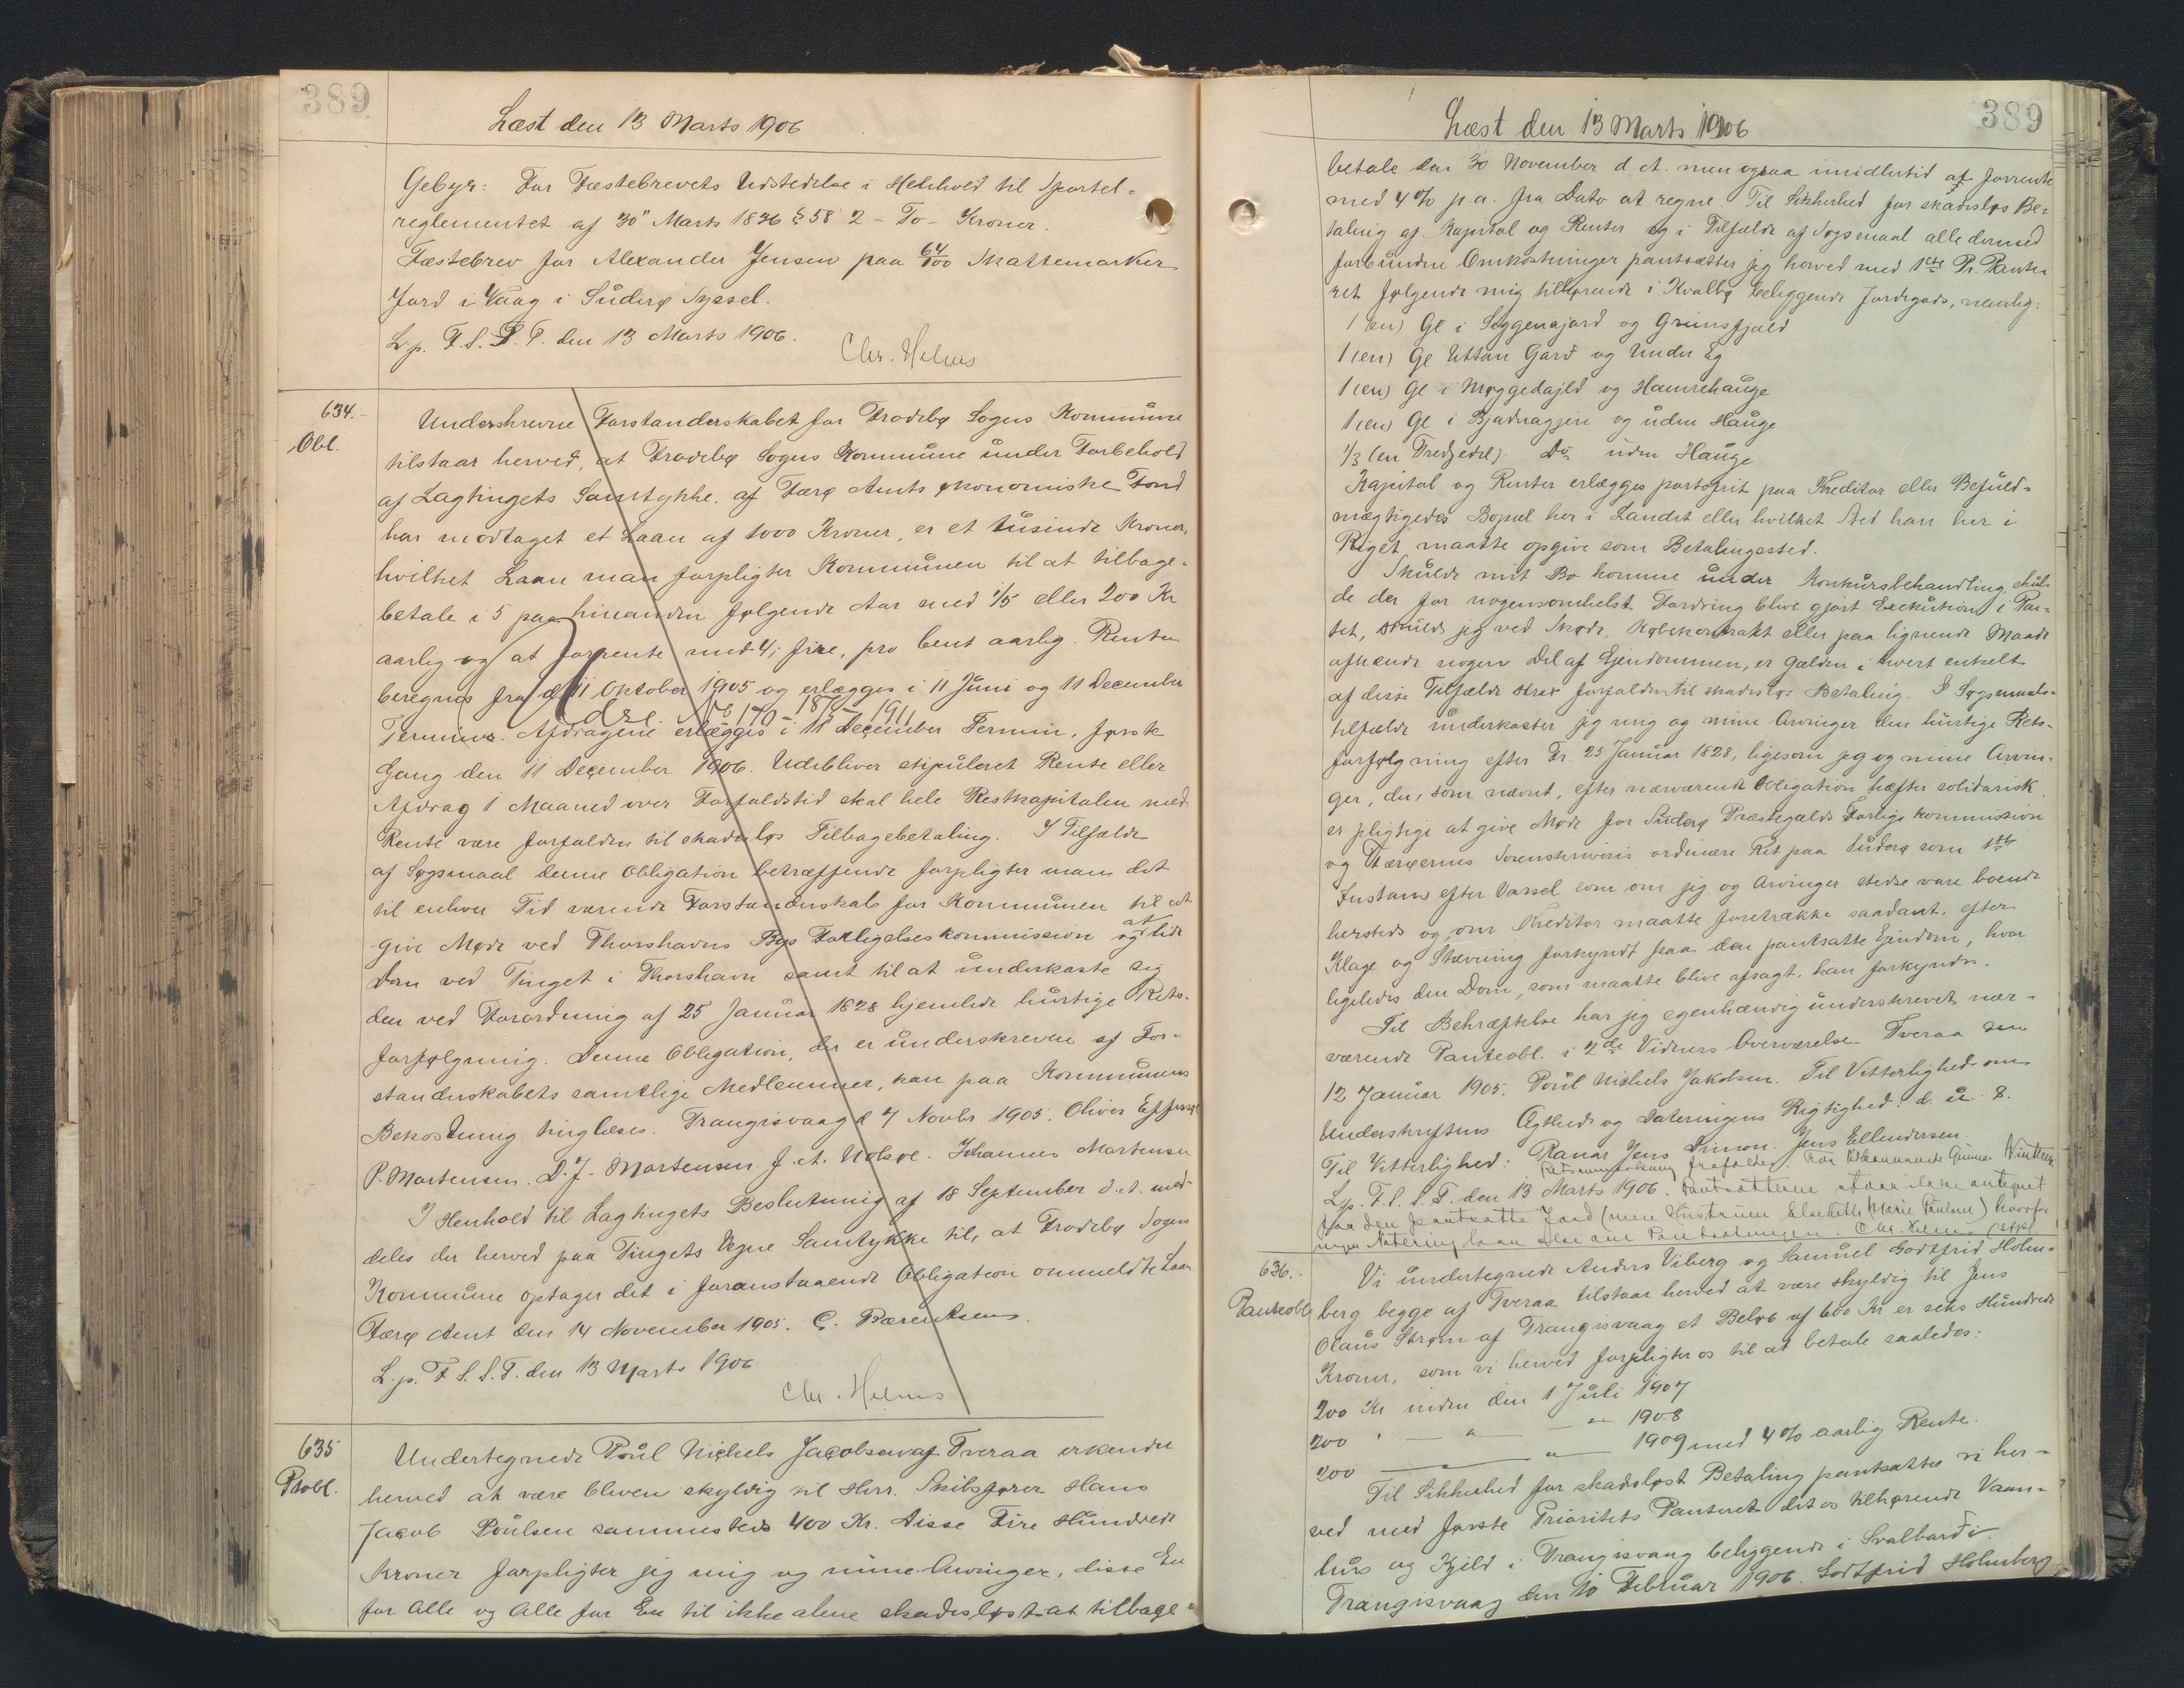 389
Læst den 13 Marts 1906
Gebyr: For Fæstebrevets Udstedelse i Henhold til Sportel-
reglementet af 30" Marts 1836 § 58 2 - To - Kroner.
Fæstebrev for Alexander Jensen paa 64/100 Skattemarker
Jord i Vaag i Suderø Syssel.
L. p. F. S. S. T. den 13 Marts 1906.
Chr. Helms
634.
Obl.
Underskrevne Forstanderskabet for Frodebø Sogns Kommune
tilstaar herved, at Frodebø Sogns Kommune under Forbehold
af Lagtingets Samtykke af Færø Amts økonomiske Fond
har modtaget et Laan af 1000 Kroner, er et tusinde Kroner,
hvilket Laan man forpligter Kommunen til at tilbage-
betale i 5 paa hinanden følgende Aar med 1/5 eller 200 Kr
aarlig og at forrente med 4, fire, pro Cent aarlig. Renten
beregnes fra d 11 Oktober 1905 og erlægges i 11 Juni og 11 December
Terminer. Afdragene erlægges i 11 December Termin, første
Gang den 11 December 1906. Udebliver stipuleret Rente eller
Afdrag 1 Maaned over Forfaldstid skal hele Restkapitalen med
Rente være forfalden til skadesløs Tilbagebetaling. I Tilfælde
af Søgsmaal denne Obligation betræffende forpligter man det
til enhver Tid værende Forstanderskab for Kommunen til at
give Møde ved Thorshavns Bys Forligelseskommission og at lide
Dom ved Tinget i Thorshavn samt til at underkaste sig
den ved Forordning af 25 Januar 1828 hjemlede hurtige Rets-
forfølgning. Denne Obligation, der er underskreven af For-
standerskabets samtlige Medlemmer, kan paa Kommunens
Bekostning tinglæses. Trangisvaag d 7 Novbr 1905. Oliver Effersøe
P. Mortensen. D. J. Mortensen. J. A. Nolsøe. Johannes Mortensen
I Henhold til Lagtingets Beslutning af 18 September d. A. med-
deles der herved paa Tingets Vegne Samtykke til, at Frodebø Sogns
Kommune optager det i foranstaaende Obligation ommeldte Laan.
Færø Amt den 14 November 1905. C. Bærentsen.
L. p. F. S. S. T. den 13 Marts 1906
Chr. Helms
635
Ptobl.
Undertegnede Poul Nichels Jacobsen af Tveraa erkender
herved at være bleven skyldig til Herr. Skibsfører Hans
Jacob Poulsen sammesteds 400 Kr. Disse Fire Hundrede
Kroner forpligter jeg mig og mine Arvinger, disse En
for Alle og Alle for En til ikke alene skadesløst at tilbage-
389
Læst den 13 Marts 1906
betale den 30 November d. A. men ogsaa imidlertid at forrente
med 4 % p. a. fra Dato at regne. Til Sikkerhed for skadesløs Be-
taling af Kapital og Renter og i Tilfælde af Søgsmaal alle dermed
forbundne Omkostninger pantsætter jeg herved med 1ste Pr. Pante-
ret følgende mig tilhørende i Kvalbø beliggende Jordegods, nemlig:
1 (en) Gl i Siggenajord og Grimsfjald
1 (en) Gl Uttan Gard og Under Eg
1 (en) Gl i Møggedajld og Hamrehauge
1 (en) Gl i Bjadnaggjere og uden Hauge
1/3 (en Tredjedel) Do uden Hauge
Kapital og Renter erlægges portofrit paa Kreditor eller Befuld-
mægtigedes Bopæl her i Landet eller hvilket Sted han her i
Riget maatte opgive som Betalingssted.
Skulde mit Bo komme under Konkursbehandling, skul-
de der for nogensomhelst Fordring blive gjort Exekution i Pan-
tet, skulde jeg ved Skøde, Købekontrakt eller paa lignende Maade
afhænde nogen Del af Ejendommen, er Gælden i hvert enkelt
af disse Tilfælde strax forfalden til skadesløs Betaling. I Søgsmaals-
tilfælde underkaster jeg mig og mine Arvinger den hurtige Rets-
forfølgning efter Fr. 25 Januar 1828, ligesom jeg og mine Arvin-
ger, der, som nævnt, efter nærværende Obligation hæfter solidarisk,
er pligtige at give Møde for Suderø Præstegælds Forligskommission
og Færøernes Sorenskriveris ordinære Ret paa Suderø som 1ste
Instans efter Varsel som om jeg og Arvinger stedse vare boende
hersteds og, om Kreditor maatte foretrække saadant, efter
Klage og Stævning forkyndt paa den pantsatte Ejendom, hvor
ligeledes den Dom, som maatte blive afsagt, kan forkyndes.
Til Bekræftelse har jeg egenhændig underskrevet nær-
værende Panteobl. i 2de Vidners Overværelse. Tveraa den
12 Januar 1905. Poul Nichels Jakobsen. Til Vitterlighed om
Underskriftens Ægthed og Dateringens Rigtighed: d. u. S.
Til Vitterlighed: Ranar Jens Simon. Jens Ellendersen.
L. p. F. S. S. T. den 13 Marts 1906. Pantsætteren staar ikke antegnet
paa den pantsatte Jord (men Enstrimen Elsebeth Marie Poulsen) hvorfor
ingen Notering
636.
Panteobl.
Vi undertegnede Anders Viberg og Samuel Godtfrid Holm-
berg begge af Tveraa tilstaar herved at være skyldig til Jens
Olaus Strøm af Trangisvaag et Beløb af 600 Kr er seks Hundrede
Kroner, som vi herved forpligter os til at betale saaledes:
200 Kr inden den 1 Juli 1907
200 " — " — " 1908
200 — " — 1909 med 4 % aarlig Rente.
Til Sikkerhed for skadesløst Betaling pantsætter vi her-
ved med første Prioritets Panteret det os tilhørende Vaan-
hus og Kjeld i Trangisvaag beliggende i Svalbardi
Trangisvaag den 10 Februar 1906. Godtfrid Holmberg